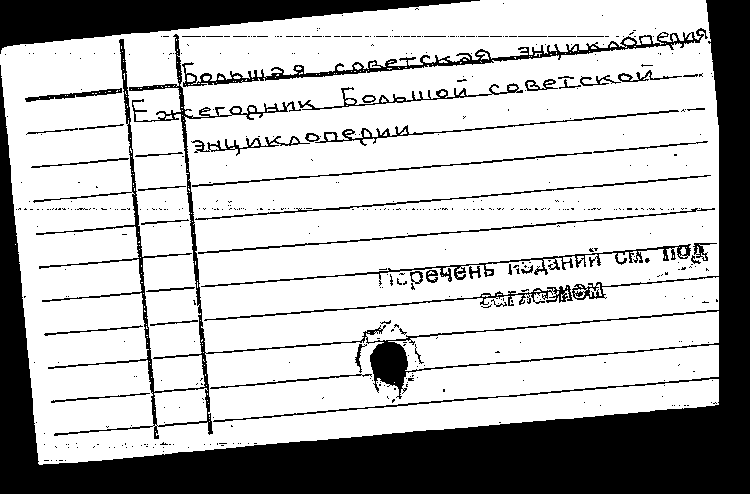 Большая советская энциклопедия
Ежегодник Большой советской
энциклопедии
Перечень изданий см. под
заглавием